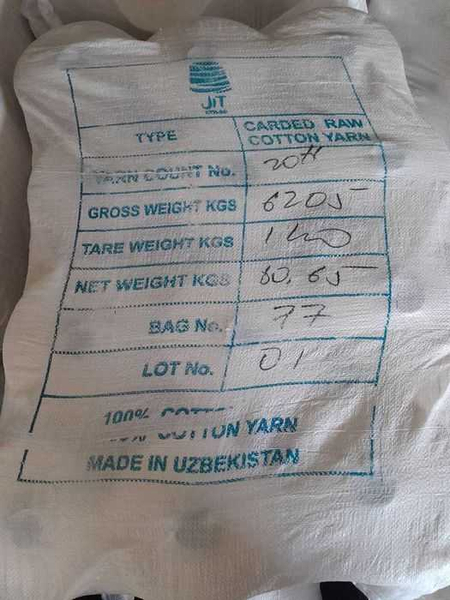 JIT
TYPE CARDED RAW COTTON YARN
YARN COUNT No. 20/1
GROSS WEIGHT KGS 6205
TARE WEIGHT KGS 140
NET WEIGHT KGS 60.65
BAG No. 77
LOT No. 01
100% COTTON YARN
MADE IN UZBEKISTAN